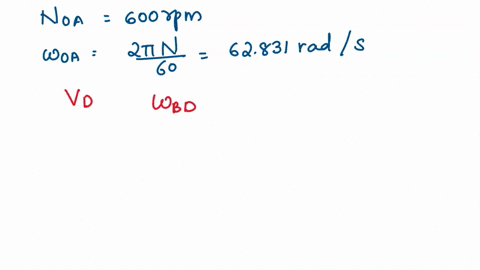 N_OA = 600 rpm
ω_OA : 2πN/60 = 62.831 rad/s
V_D ω_BD